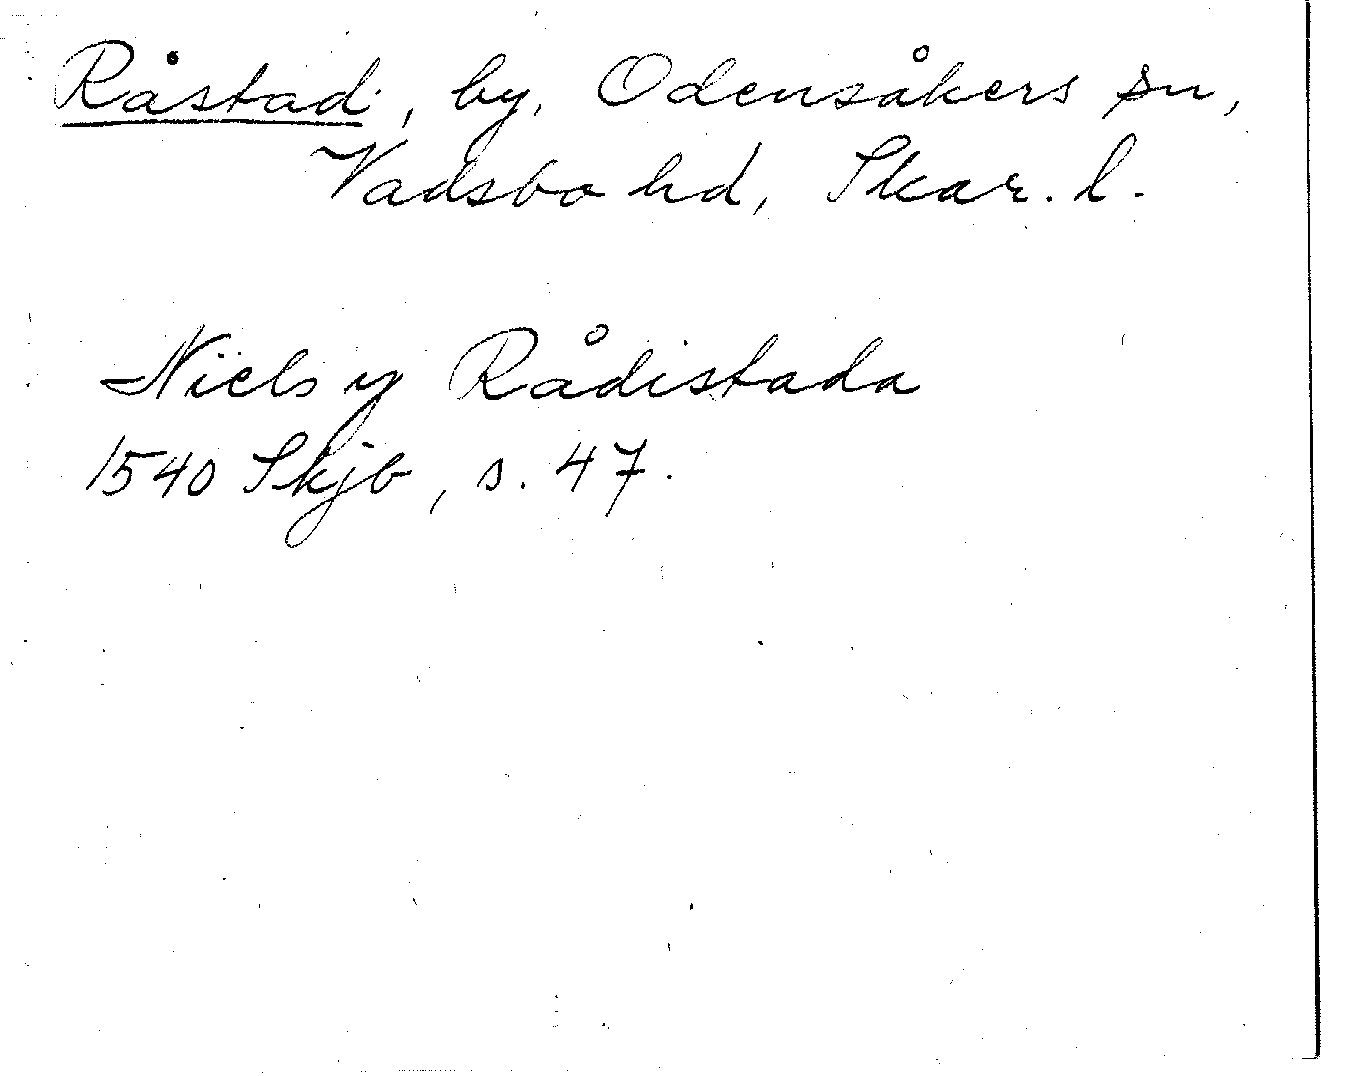 Råstad, by, Odensåkers sn,
Vadsbo hd, Skar. l.
Niels y Rådistada
1540 Skjb, s. 47.